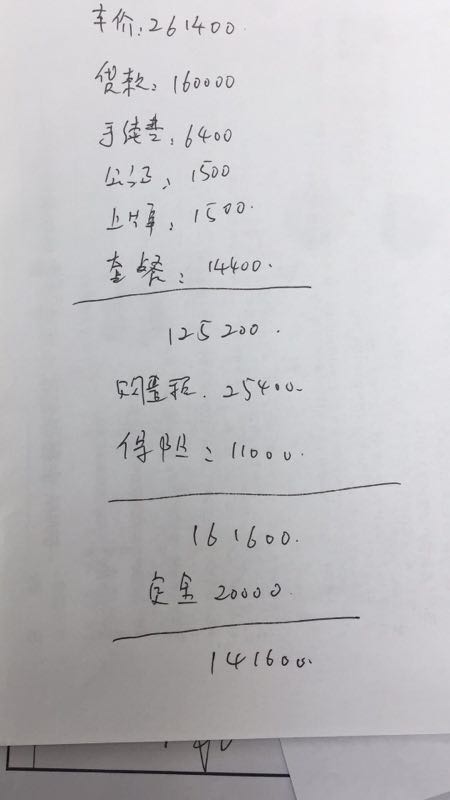 车价:261400.
贷款:160000
手续费:6400
公证:1500
上牌:1500.
套餐:14400.
125200.
购置税.25400.
保险:11000.
161600.
定金 20000.
141600.